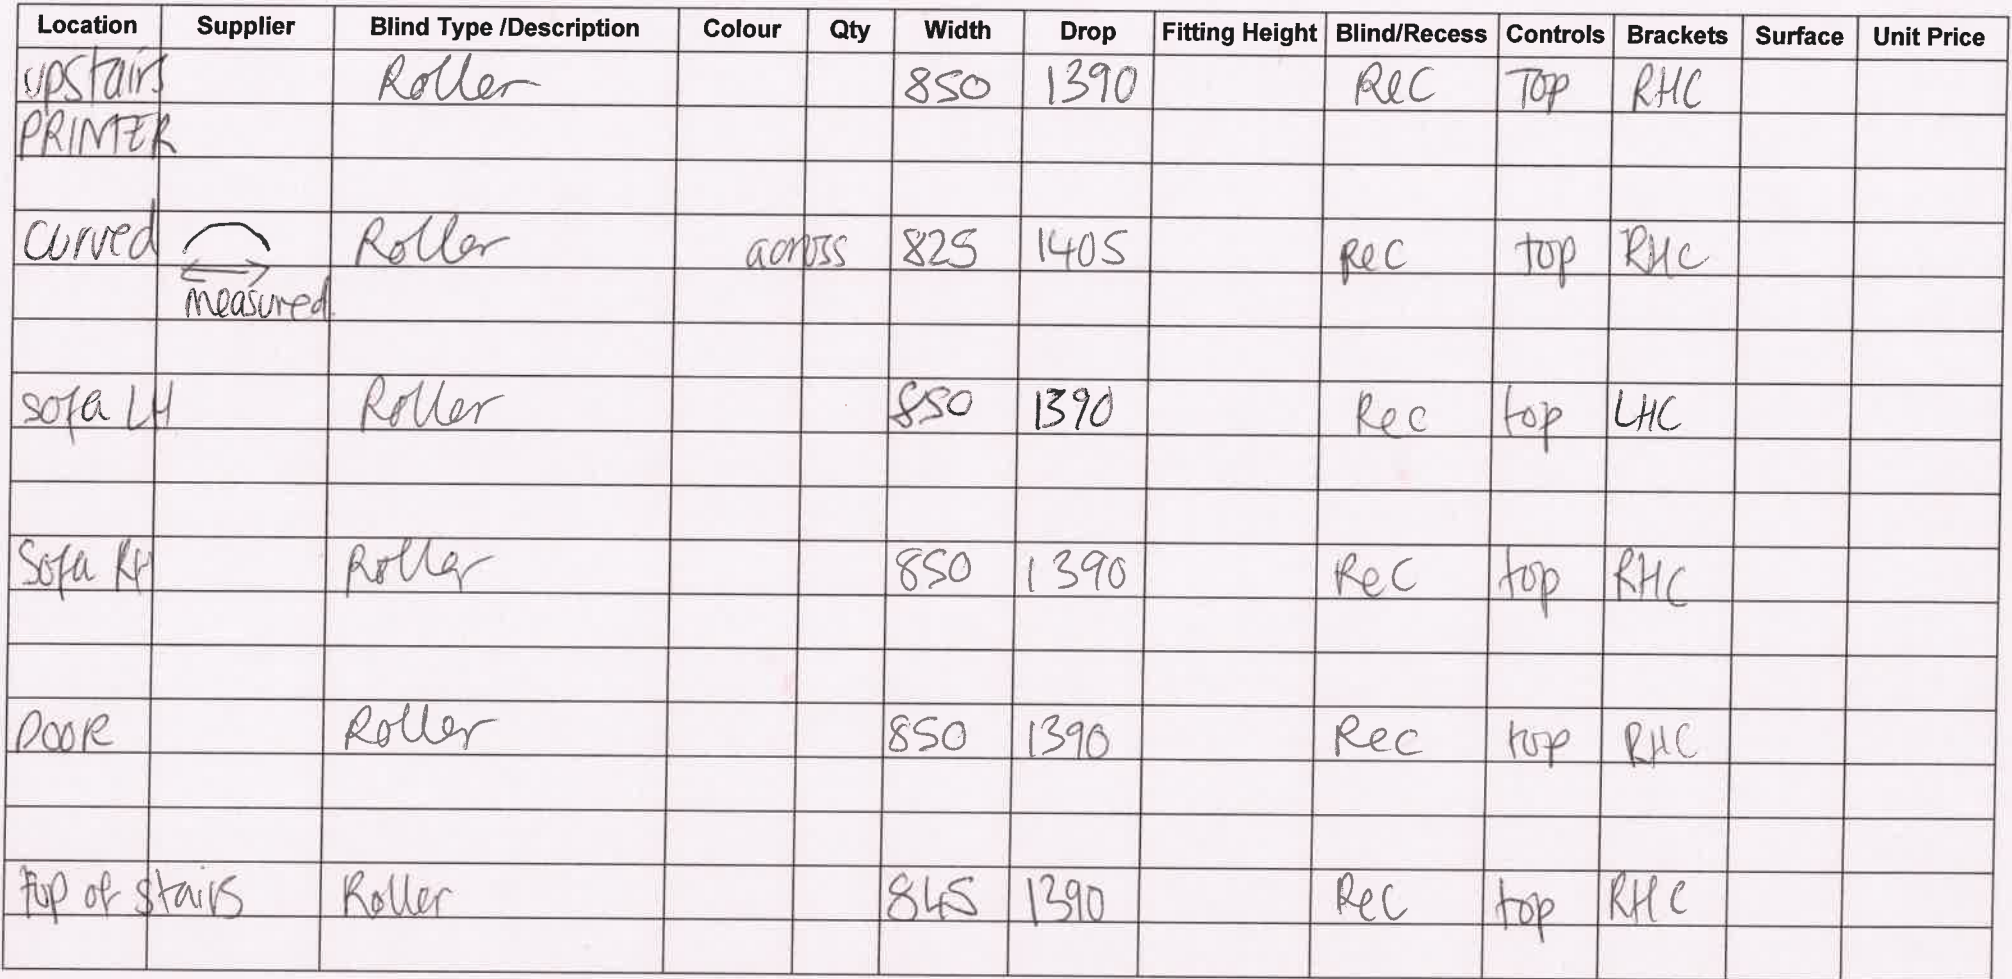 Location Supplier Blind Type /Description Colour Qty Width Drop Fitting Height Blind/Recess Controls Brackets Surface Unit Price
upstairs Roller 850 1390 Rec Top RHC
PRINTER
curved Roller across 825 1405 Rec top RHC
measured
sofa LH Roller 850 1390 Rec top LHC
Sofa RH Roller 850 1390 Rec top RHC
DOOR Roller 850 1390 Rec top RHC
top of stairs Roller 845 1390 Rec top RHC